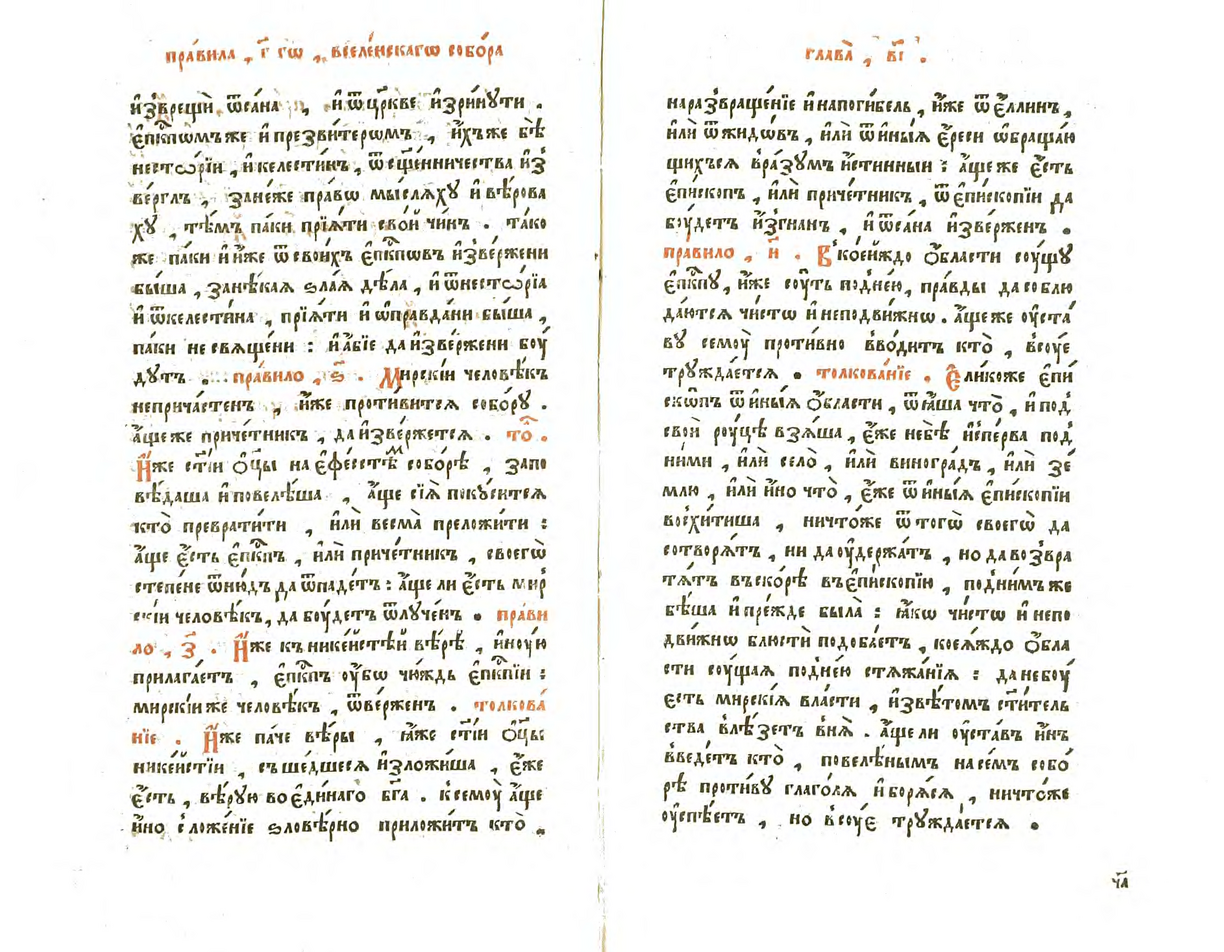 пра́вила , г҃ гѡ , вселе́нскагѡ собо́ра
и҆звреща̀ ѿса́на , и҆ѿцр҃кве и҆зри́нути .
є҆пкⷭ҇пѡмъже и҆презви́терѡмъ , и҆́хъже бѣ̀
несто́рїи , и҆келести́нъ , ѿсщ҃е́нничества и҆з
ве́рглъ , зане́же пра́вѡ мы́сляхꙋ и҆вѣ́рова
хꙋ , тѣ́мъ па́ки прїя́ти сво́й чи́нъ . та́ко
же па́ки и҆и҆́же ѿсвои́хъ є҆пкⷭ҇пѡвъ и҆зве́ржени
бы́ша , занѣ́кая ѕла́я дѣ́ла , и҆ѿнесто́рїа
и҆ѿкелести́на , прїя́ти и҆ѡ҆правда́ни бы́ша ,
па́ки не свяще́ни : и҆а҆́бїе да и҆зве́ржени боу́
дутъ . пра́вило , ѕ҃ . Мирскі́и человѣ́къ
неприча́стенъ , и҆́же проти́вится собо́рꙋ .
а҆́ще же приче́тникъ , да и҆зве́ржется . то̑ .
И҆̀же ст҃і́и ѻ҆ц҃ы̀ на є҆фе́сстѣмъ собо́рѣ , запо
вѣ́даша и҆повелѣ́ша , а҆́ще сїя̀ покꙋси́тся
кто̀ преврати́ти , и҆лѝ весма̀ преложи́ти :
а҆́ще є҆́сть є҆пкⷭ҇пъ , и҆лѝ приче́тникъ , своегѡ̀
степе́не ѿню́дъ да ѿпаде́тъ : а҆́ще ли є҆́сть мир
скі́и человѣ́къ, да боу́детъ ѿлꙋче́нъ . пра́ви
ло , з҃ . И҆̀же къ нике́йстѣй вѣ́рѣ , и҆нꙋ́ю
прилага́етъ , є҆пкⷭ҇пъ оу҆́бѡ чю́ждь є҆пкⷭ҇пі́и :
мирскі́и же человѣ́къ , ѿве́рженъ . толкова́
нїе . И҆̀же па́че вѣ́ры , ꙗ҆́же ст҃і́и ѻ҆ц҃ы̀
нике́йстїи , съше́дшеся и҆зложи́ша , є҆́же
є҆́сть , вѣ́рꙋю во є҆ди́наго бг҃а . к семоу̀ а҆́ще
и҆́но сложе́нїе ѕловѣ́рно приложи́тъ кто̀ ,
глава̀ , в҃і .
наразвраще́нїе и҆напоги́бель , и҆́же ѿє҆́ллинъ ,
и҆лѝ ѿжидѡ́въ , и҆лѝ ѿи҆ны́я є҆́реси ѡ҆браща́ю
щихъся вра́зꙋмъ и҆́стинныи : а҆́ще же є҆́сть
є҆пи́скопъ , и҆лѝ приче́тник , ѿє҆пископі́и да
боу́детъ и҆́згнанъ , и҆ѿса́на и҆зве́рженъ .
пра́вило , и҃ . В кое́йждо ѻ҆́бласти соу́щꙋ
є҆пкⷭ҇пꙋ , и҆́же соу́ть под не́ю, пра́вды да соблю
да́ются чи́стѡ и҆неподви́жнѡ . а҆́ще же оу҆ста́
вꙋ семоу̀ проти́вно вво́дитъ кто̀ , всоу́е
трꙋжда́ется . толкова́нїе . Є҆ли́коже є҆пи
скѡпъ ѿи҆ны́я ѻ҆́бласти , ѿꙗ҆́ша что̀ , и҆под
свой роу́цѣ взя́ша , є҆́же небѣ̀ и҆спе́рва под
ни́ми , и҆лѝ село̀ , и҆лѝ виногра́дъ , и҆лѝ зе́
млю , и҆лѝ и҆́но что̀ , є҆́же ѿи҆ны́я є҆пископі́и
восхи́тиша , ничто́же ѿ тогѡ̀ своегѡ̀ да
сотворя́тъ , ни да оу҆держа́тъ , но да возвра
тя́тъ вско́рѣ въ є҆пископі́ю , под ни́мъ же
бѣ́ша и҆пре́жде была̀ : ꙗ҆́кѡ чи́стѡ и҆непо
дви́жнѡ блюстѝ подоба́етъ , коея́ждо ѻ҆́бла
сти соу́щая под не́ю стяжа́нїя : да небоу́
є҆сть мирскі́я вла́сти , и҆звѣ́томъ ст҃и́тель
ства влѣ́зетъ вня̀ . А҆́ще ли оу҆ста́въ и҆́нъ
введе́тъ кто̀ , повелѣ́нымъ на се́мъ собо́
рѣ проти́вꙋ глаго́ля и҆боря́ся , ничто́же
оу҆спѣ́етъ , но всоу́е трꙋжда́ется .
ч҃а